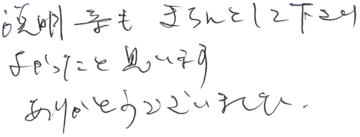 説明等もきちんとして下さり
よかったこと思います
ありがとうございました。